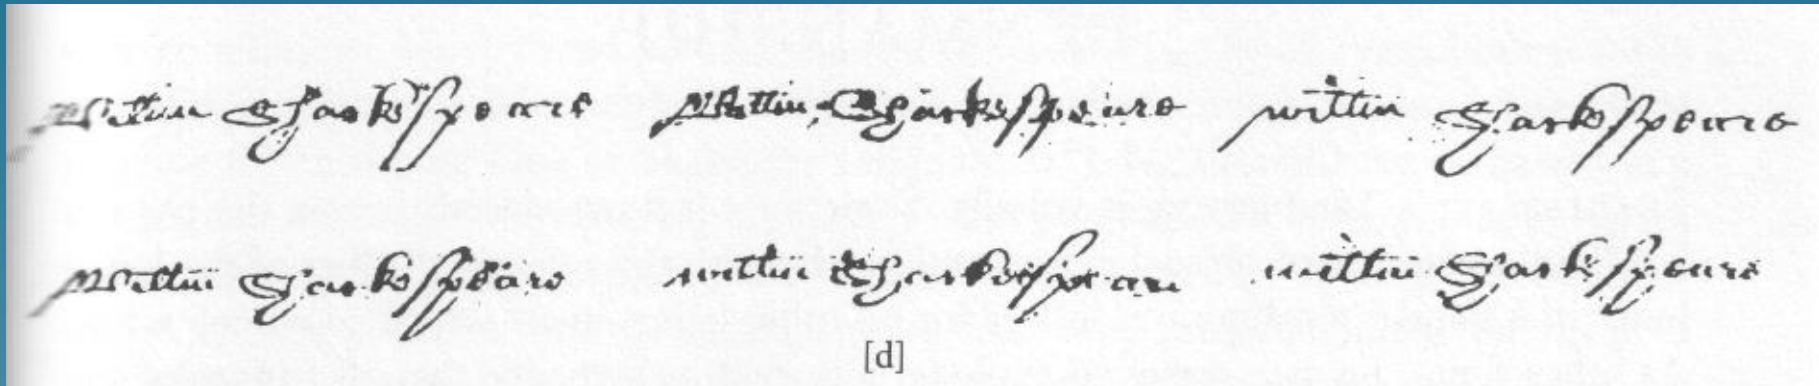 Willm Sharkspeare Willm Sharkespeare willm Sharkspeare
Willm Sharkspeare willm Sharkespeare willm Sharkspeare
[d]